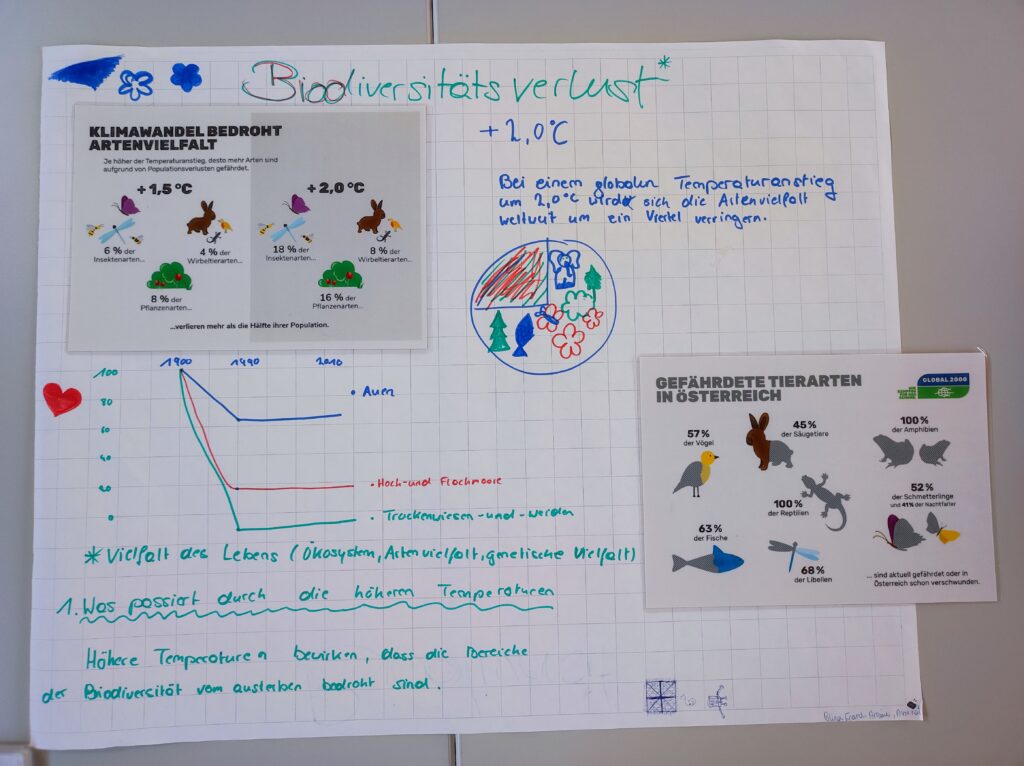 Biodiversitätsverlust*
KLIMAWANDEL BEDROHT
ARTENVIELFALT
Je höher der Temperaturanstieg, desto mehr Arten sind
aufgrund von Populationsverlusten gefährdet.
+ 1,5 °C
+ 2,0 °C
6 % der
Insektenarten...
4 % der
Wirbeltierarten...
18 % der
Insektenarten...
8 % der
Wirbeltierarten...
8 % der
Pflanzenarten...
16 % der
Pflanzenarten...
...verlieren mehr als die Hälfte ihrer Population.
+ 2,0°C
Bei einem globalen Temperaturanstieg
um 2,0°C würde sich die Artenvielfalt
weltweit um ein Viertel verringern.
1900 1990 2010
100
80
60
40
20
0
• Auen
• Hoch-und Flachmoore
• Trockenwiesen-und-
GEFÄHRDETE TIERARTEN
IN ÖSTERREICH
GLOBAL 2000
57 %
der Vögel
45 %
der Säugetiere
100 %
der Amphibien
100 %
der Reptilien
52 %
der Schmetterlinge
und 41% der Nachtfalter
63 %
der Fische
68 %
der Libellen
... sind aktuell gefährdet oder in
Österreich schon verschwunden.
* Vielfalt des Lebens (Ökosystem, Artenvielfalt, genetische Vielfalt)
1. Was passiert durch die höheren Temperaturen
Höhere Temperaturen bewirken, dass die Bereiche
der Biodiversität vom austerben bedroht sind.